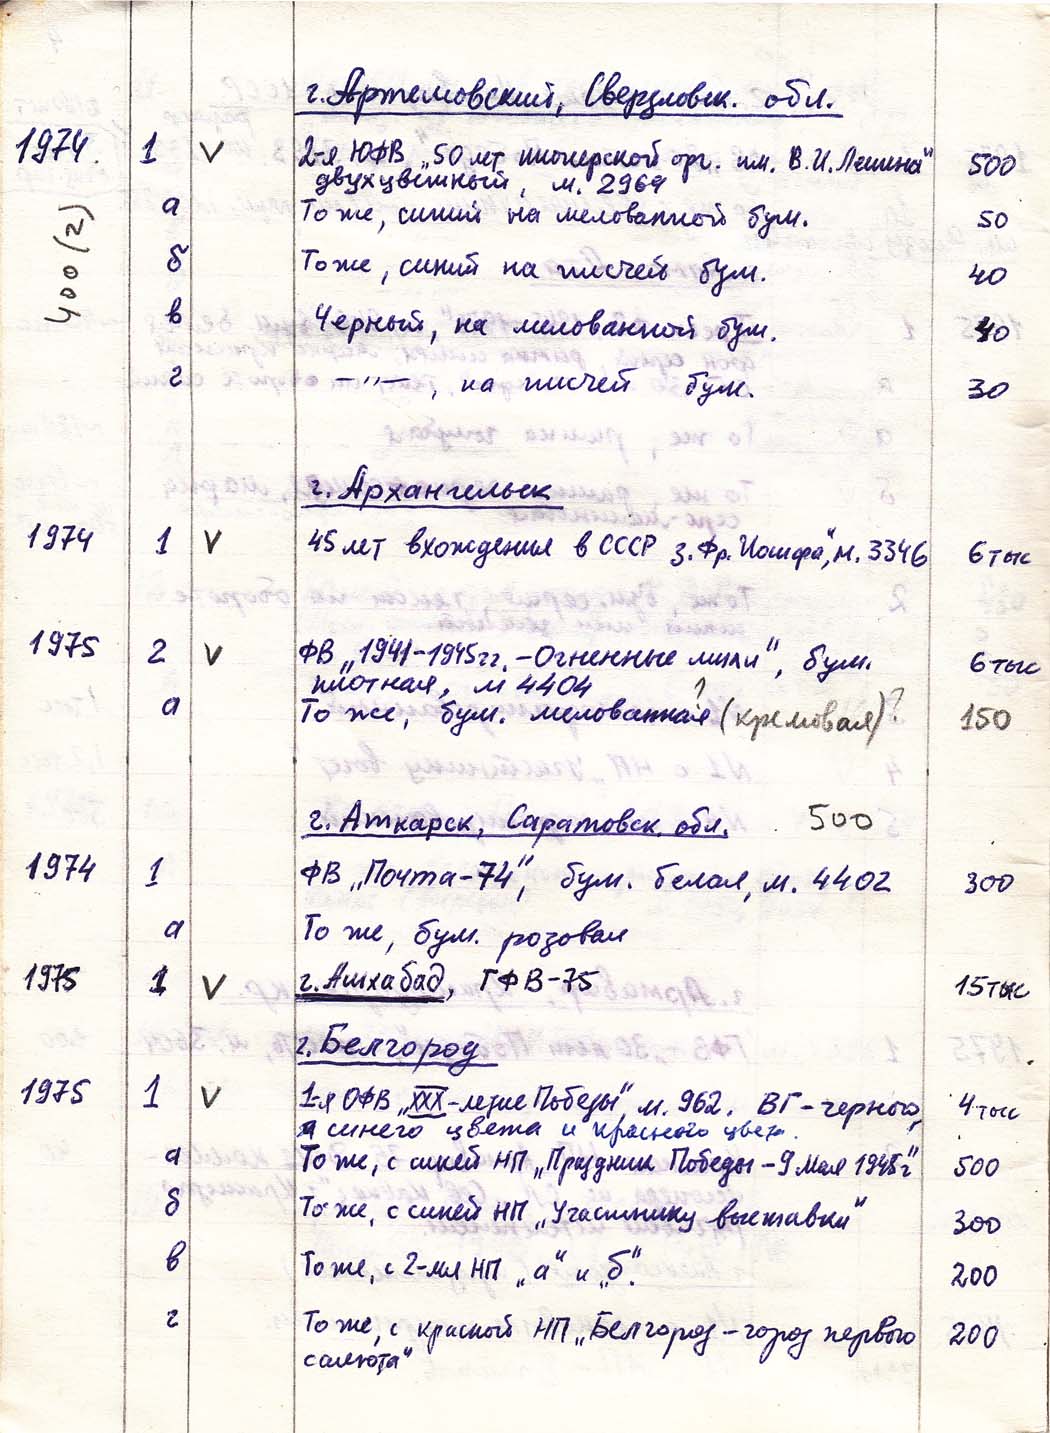 г. Артемовский, Свердловск. обл.
1974. 1 V 2-я ЮФВ „50 лет пионерской орг. им. В.И. Ленина" 500
двухцветный, м. 2969
400 (2)
а То же, синий на мелованной бум. 50
б То же, синий на писчей бум. 40
в Черный, на мелованной бум. 40
г —"— , на писчей бум. 30
г. Архангельск
1974 1 V 45 лет вхождения в СССР з. Фр. Иосифа", м. 3346 6 тыс
1975 2 V ФВ „1941-1945гг. – Огненные мили", бум. 6 тыс
плотная, м 4404
а То же, бум. мелованная ? (кремовая)? 150
г. Аткарск, Саратовск. обл. 500
1974 1 ФВ „Почта-74", бум. белая, м. 4402 300
а То же, бум. розовая
1975 1 V г. Ашхабад, ГФВ-75 15 тыс
г. Белгород
1975 1 V 1-я ОФВ „XXX-летие Победы", м. 962. ВГ – черного, 4 тыс
синего цвета и красного цвета.
а То же, с синей НП „Праздник Победы – 9 мая 1945г" 500
б То же, с синей НП „Участнику выставки" 300
в То же, с 2-мя НП „а" и „б". 200
г То же, с красной НП „Белгород – город первого 200
салюта"